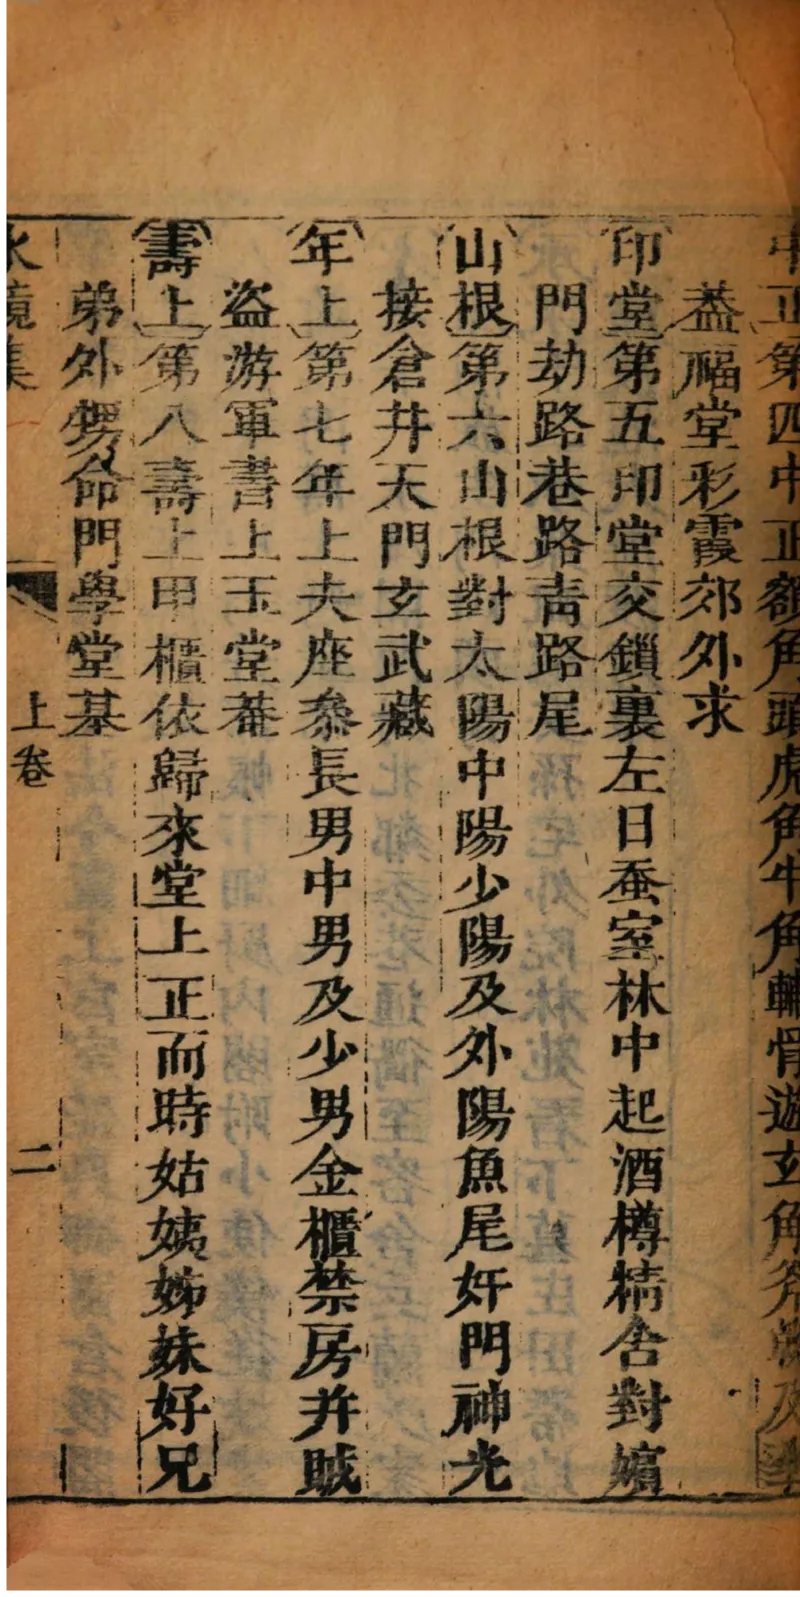 中正第四中正額角頭虎角牛角輔骨遊玄角斧戟及
葢福堂彩霞郊外求
印堂第五印堂交鎖裏左日蚕室林中起酒樽精舍對嬪
門劫路巷路青路尾
山根第六山根對太陽中陽少陽及外陽魚尾奸門神光
接倉井天門玄武藏
年上第七年上夫座叅長男中男及少男金櫃禁房并賊
盜游軍書上玉堂菴
壽上第八壽上甲櫃依歸來堂上正而時姑姨姊妹好兄
弟外甥命門學堂基
水鏡集 上卷 二